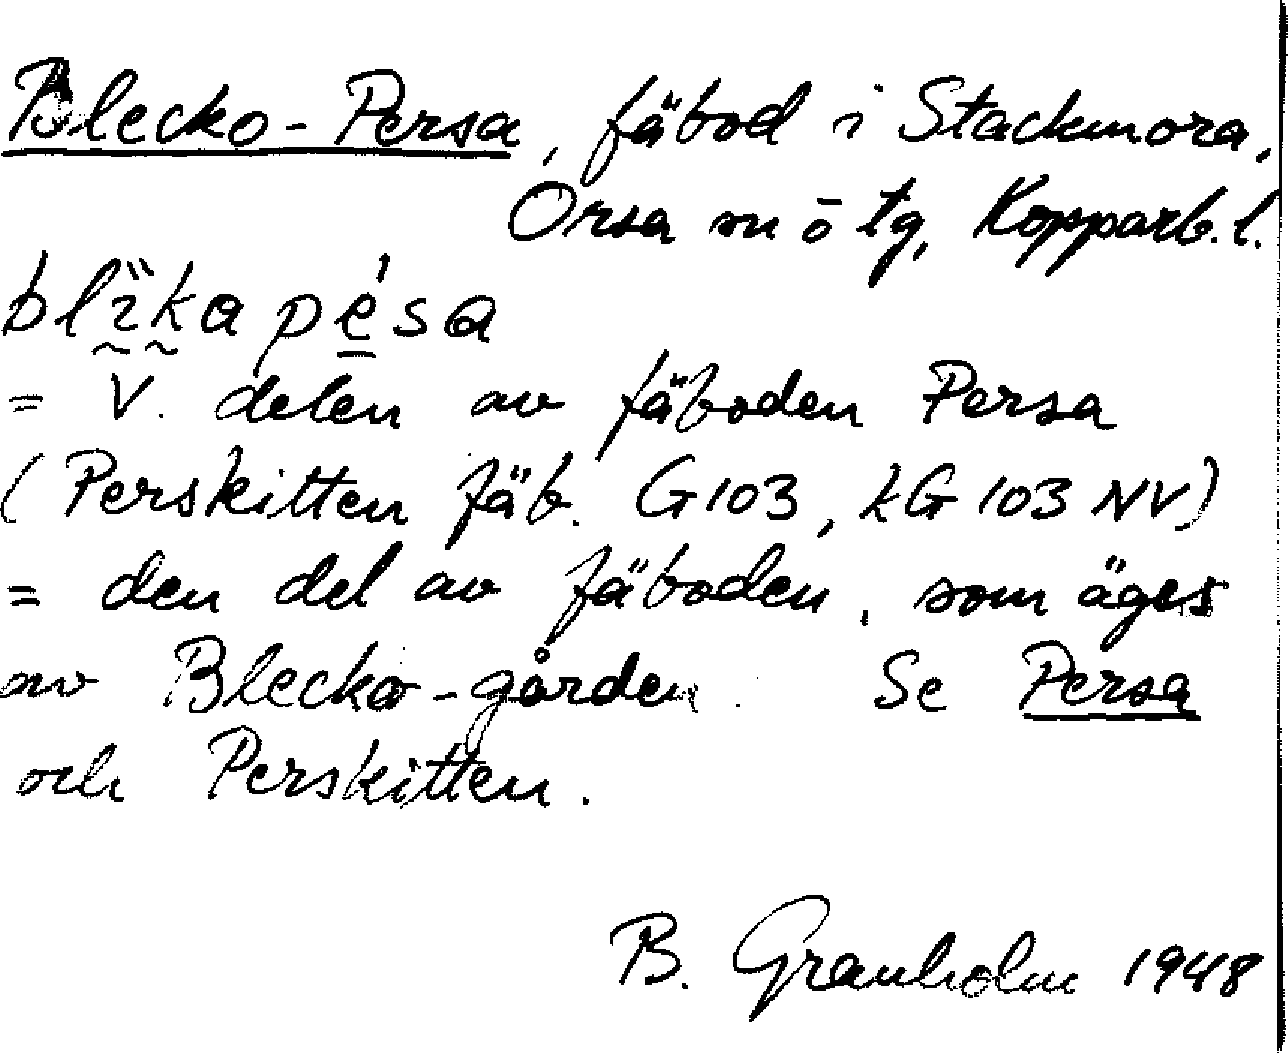 Blecko-Persa, fäbod i Stackmora,
Orsa sn ō tg, Kopparb. l.
= V. delen av fäboden Persa
(Perskitten fäb. G103, LG 103 NV)
= den del av fäboden, som äges
av Blecko-gården. Se Persa
och Perskitten.
B. Granholm 1948